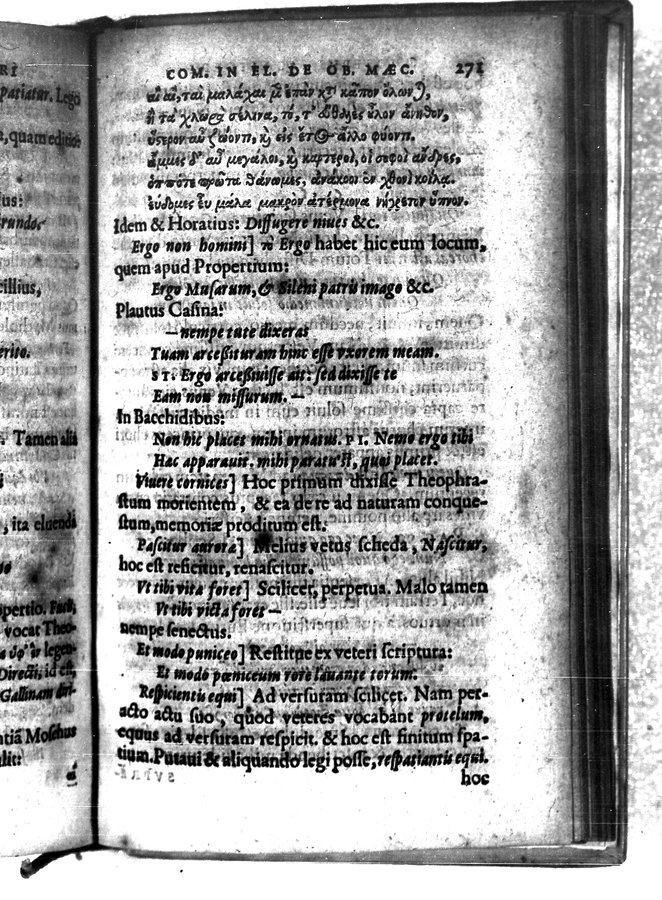 COM. IN EL. DE OB. MÆC. 271
αἲ αἲ, ταὶ μαλάχαι μὲν ἐπὰν κτ̀ κᾶπον ὄλων),
ἢ τὰ χλωρὰ σέλινα, τό, τ' εὐθαλὲς οὖλον ἄνηθον,
ὕστερον αὖ ζώοντι, κ̀ εἰς ἔτος ἄλλο φύοντι.
ἄμμες δ' αὖ μεγάλοι, κ̀ καρτεροὶ, οἱ σοφοὶ ἄνδρες,
ὁππότε πρῶτα θάνωμες, ἀνάκοοι ἐν χθονὶ κοίλᾳ.
εὕδομες εὖ μάλα μακρὸν ἀτέρμονα νήγρετον ὕπνον.
Idem & Horatius: Diffugere niues &c.
Ergo non homini] τὸ Ergo habet hic eum locum,
quem apud Propertium:
Ergo Musarum, & Sileni patris imago &c.
Plautus Casina:
— nempe tute dixeras
Tuam arceßituram hinc esse vxorem meam.
ST. Ergo arceßiuisse ait: sed dixisse te
Eam non missurum. —
In Bacchidibus:
Non hic placet mihi ornatus. PI. Nemo ergo tibi
Hac apparauit. mihi paratu'st, quoi placet.
Viuere cornices] Hoc primum dixisse Theophra-
stum morientem, & ea de re ad naturam conque-
stum, memoriæ proditum est.
Pascitur aurora] Melius vetus scheda, Nascitur,
hoc est reficitur, renascitur.
Vt tibi vita foret] Scilicet, perpetua. Malo tamen
Vt tibi victa foret —
nempe senectus.
Et modo puniceo] Restitue ex veteri scriptura:
Et modò pœniceum rore lauante torum.
Respicientis equi] Ad versuram scilicet. Nam per-
acto actu suo, quod veteres vocabant protelum,
equus ad versuram respicit. & hoc est finitum spa-
tium. Putaui & aliquando legi posse, respatiantis equi.
hoc